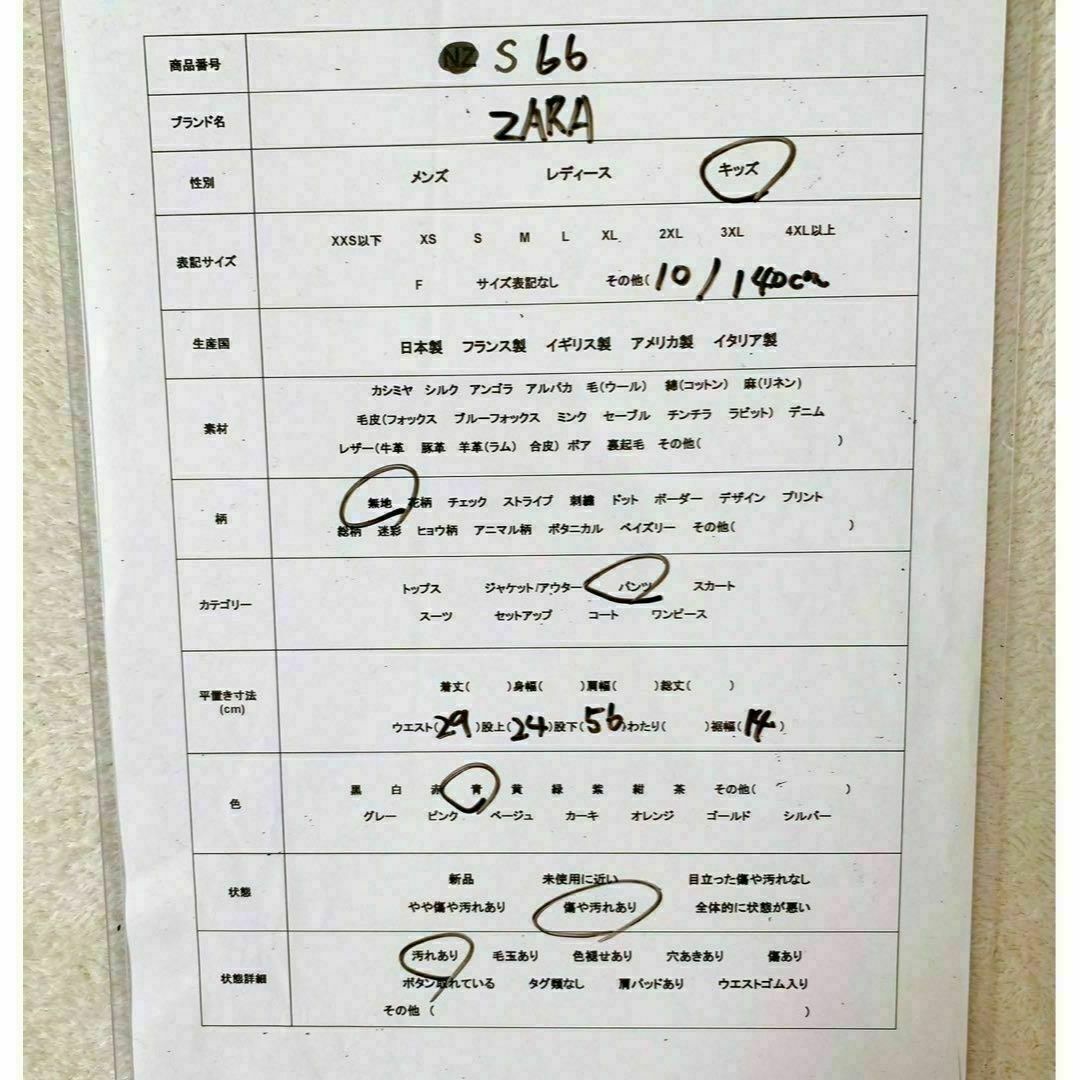 商品番号 NZ S 66
ブランド名 ZARA
性別 メンズ レディース キッズ
XXS以下 XS S M L XL 2XL 3XL 4XL以上
表記サイズ
F サイズ表記なし その他( 10/140cm )
生産国 日本製 フランス製 イギリス製 アメリカ製 イタリア製
カシミヤ シルク アンゴラ アルパカ 毛(ウール) 綿(コットン) 麻(リネン)
素材 毛皮(フォックス ブルーフォックス ミンク セーブル チンチラ ラビット) デニム
レザー(牛革 豚革 羊革(ラム) 合皮) ボア 裏起毛 その他( )
無地 花柄 チェック ストライプ 刺繍 ドット ボーダー デザイン プリント
柄
総柄 迷彩 ヒョウ柄 アニマル柄 ボタニカル ペイズリー その他( )
トップス ジャケット/アウター パンツ スカート
カテゴリー
スーツ セットアップ コート ワンピース
着丈( )身幅( )肩幅( )総丈( )
平置き寸法
(cm)
ウエスト(29)股上(24)股下(56)わたり( )裾幅(14)
黒 白 赤 青 黄 緑 紫 紺 茶 その他( )
色
グレー ピンク ベージュ カーキ オレンジ ゴールド シルバー
新品 未使用に近い 目立った傷や汚れなし
状態
やや傷や汚れあり 傷や汚れあり 全体的に状態が悪い
汚れあり 毛玉あり 色褪せあり 穴あきあり 傷あり
状態詳細 ボタン取れている タグ類なし 肩パッドあり ウエストゴム入り
その他 ( )